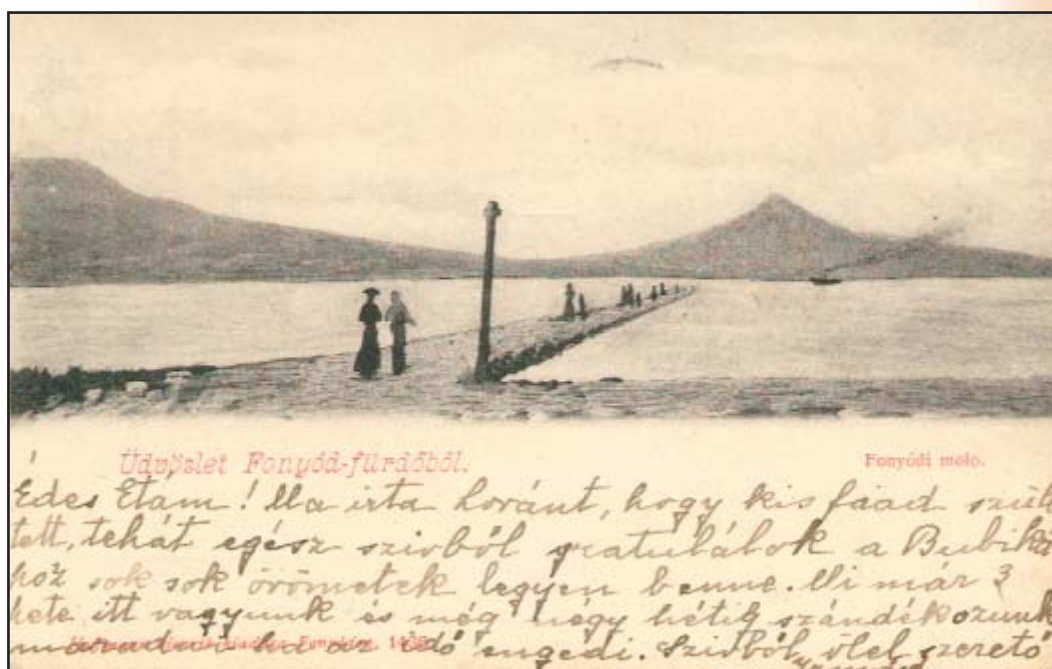 Üdvözlet Fonyód-fürdőből.
Fonyódi moló.
Édes Etám! Ma irta Loránt, hogy kis fiad szüle
tett, tehát egész szivből gratulálok a Bubiká
hoz sok sok örömetek legyen benne. Mi már 3
hete itt vagyunk és még négy hétig szándékozunk
maradni ha az idő engedi. Szivből ölel szerető
kiadása Fonyódon.